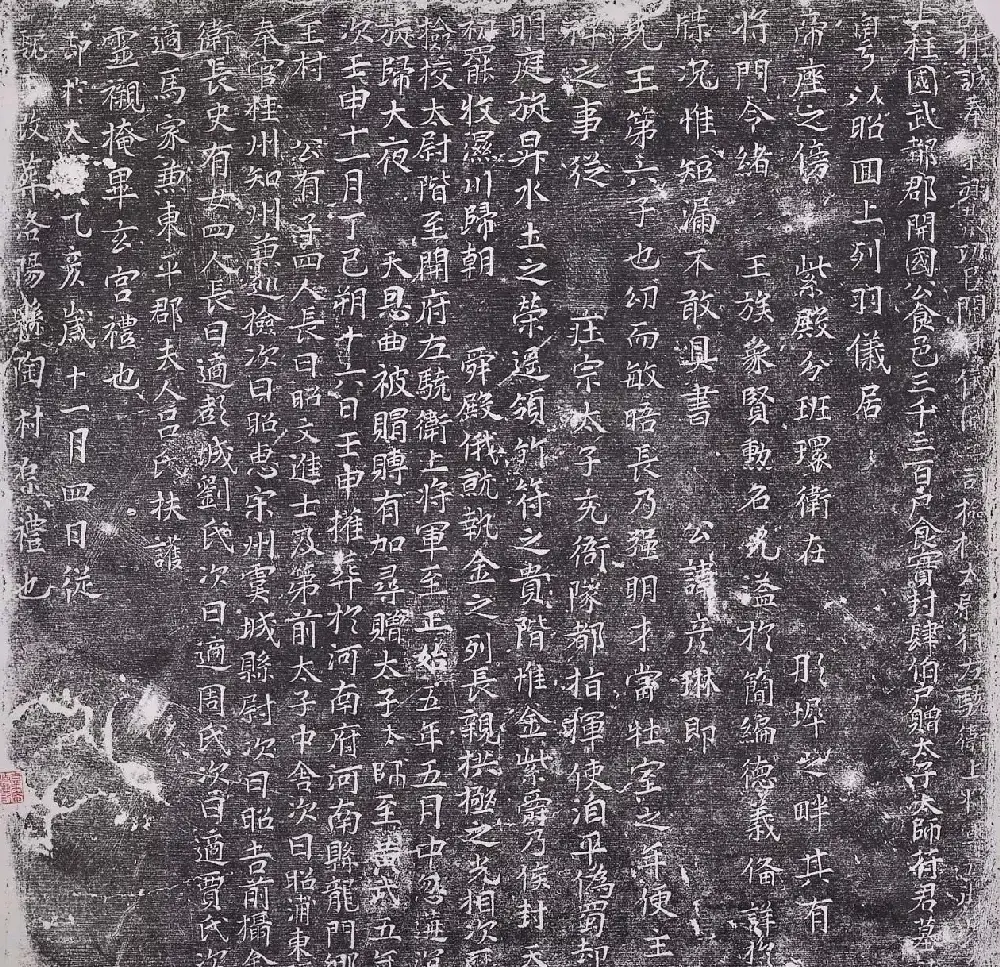 推誠奉功臣開府儀同三司檢校太尉行左驍衛上將軍
上柱國武都郡開國公食邑三千三百戶食實封肆伯戶贈太子太師苻君墓
穹以昭回上列羽儀居
帝座之傍 紫殿分班環衛在 彤墀之畔其有
將門令緒 王族象賢勲名光溢於簡編德義俻詳於
牒況惟短漏不敢具書 公諱彥琳即
先王第六子也幼而敏晤長乃强明才當牡室之年便主
之事從 莊宗太子充衙隊都指揮使洎平偽蜀却
明庭旋昇水土之榮遥領竹符之貴階惟金紫爵乃侯封
罷牧濕川歸朝 舜殿俄就執金之列長親拱極之光相次
檢挍太尉階至開府左驍衛上將軍至正始五年五月中忽遘
旋歸大夜 天恩曲被賵賻有加尋贈太子太師至黃武五年
次壬申十一月丁巳朔十六日壬申摧葬於河南府河南縣龍門鄉
王村 公有子四人長曰昭文進士及第前太子中舍次曰昭浦東
奉官桂州知州兼廵檢次曰昭惠宋州虞城縣尉次曰昭吉前攝金
衛長史有女四人長曰適彭城劉氏次曰適周氏次曰適賈氏次
適馬家兼東平郡夫人吕氏扶護
靈櫬掩畢玄宮禮也
却於大 乙亥歲十一月四日從
改葬洛陽縣陶村原禮也